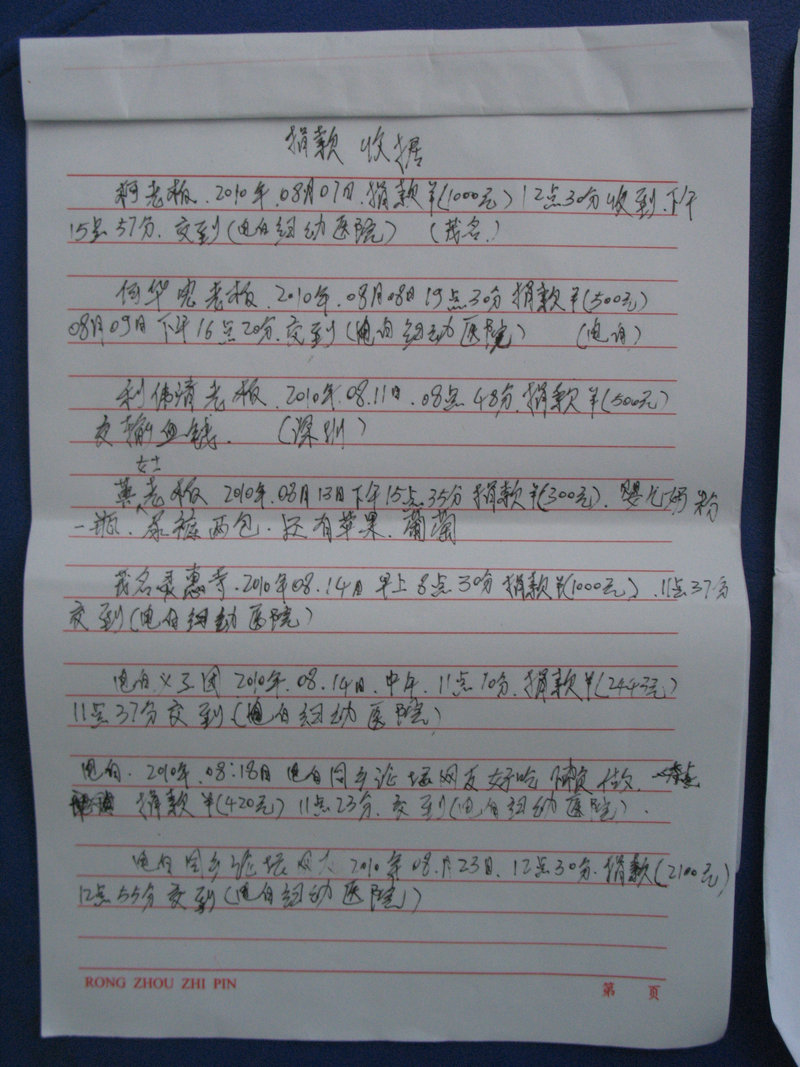 捐款收据
柯老板.2010年.08月07日.捐款¥(1000元)12点30分收到.下午
15点57分.交到(电白妇幼医院) (茂名.)
何华 老板.2010年.08月08日19点30分捐款¥(500元)
08月09日下午16点20分.交到(电白妇幼医院) (电白)
利伟清老板.2010年.08.11日.08点48分.捐款¥(500元)
交输血钱. (深圳)
女士
老板 2010年.08月13日下午15点35分捐款¥(300元).婴儿奶粉
一瓶.尿裤两包.还有苹果.葡萄
茂名 惠 .2010年08.14日早上8点30分捐款¥(1000元).11点37分
交到(电白妇幼医院)
电白义工团 2010年.08.14日.中午.11点10分.捐款¥(2443元)
11点37分交到(电白妇幼医院)
电白.2010年.08:18日 电白同乡论坛网友好
捐款¥(420元)11点23分.交到(电白妇幼医院).
电白同乡论坛网友2010年08月23日.12点30分.捐款(2100元)
12点55分交到(电白妇幼医院)
RONG ZHOU ZHI PIN 第 页